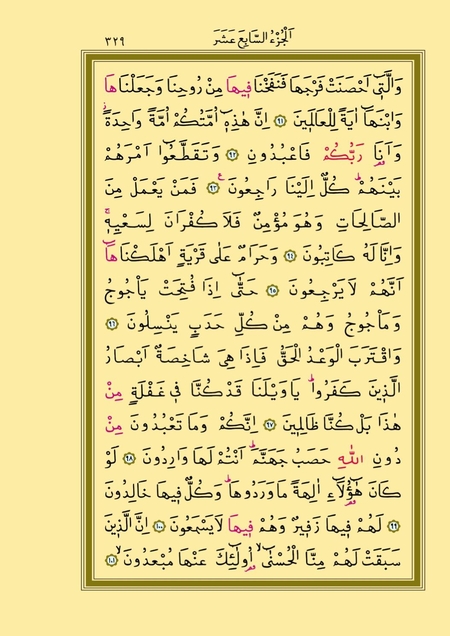 اَلْجُزْءُ السَّابِعَ عَشَرَ ٣٢٩
وَالَّتٖٓي اَحْصَنَتْ فَرْجَهَا فَنَفَخْنَا فٖيهَا مِنْ رُوحِنَا وَجَعَلْنَاهَا
وَابْنَهَٓا اٰيَةً لِلْعَالَمٖينَ ٩١ اِنَّ هٰذِهٖٓ اُمَّتُكُمْ اُمَّةً وَاحِدَةًۘ
وَاَنَا۬ رَبُّكُمْ فَاعْبُدُونِ ٩٢ وَتَقَطَّعُٓوا اَمْرَهُمْ
بَيْنَهُمْؕ كُلٌّ اِلَيْنَا رَاجِعُونَࣖ ٩٣ فَمَنْ يَعْمَلْ مِنَ
الصَّالِحَاتِ وَهُوَ مُؤْمِنٌ فَلَا كُفْرَانَ لِسَعْيِهٖۚ
وَاِنَّا لَهُ كَاتِبُونَ ٩٤ وَحَرَامٌ عَلٰى قَرْيَةٍ اَهْلَكْنَاهَٓا
اَنَّهُمْ لَا يَرْجِعُونَ ٩٥ حَتّٰٓى اِذَا فُتِحَتْ يَأْجُوجُ
وَمَأْجُوجُ وَهُمْ مِنْ كُلِّ حَدَبٍ يَنْسِلُونَ ٩٦
وَاقْتَرَبَ الْوَعْدُ الْحَقُّ فَاِذَا هِيَ شَاخِصَةٌ اَبْصَارُ
الَّذٖينَ كَفَرُواؕ يَا وَيْلَنَا قَدْ كُنَّا فٖي غَفْلَةٍ مِنْ
هٰذَا بَلْ كُنَّا ظَالِمٖينَ ٩٧ اِنَّكُمْ وَمَا تَعْبُدُونَ مِنْ
دُونِ اللّٰهِ حَصَبُ جَهَنَّمَؕ اَنْتُمْ لَهَا وَارِدُونَ ٩٨ لَوْ
كَانَ هٰٓؤُ۬لَٓاءِ اٰلِهَةً مَا وَرَدُوهَاؕ وَكُلٌّ فٖيهَا خَالِدُونَ
٩٩ لَهُمْ فٖيهَا زَفٖيرٌ وَهُمْ فٖيهَا لَا يَسْمَعُونَ ١٠٠ اِنَّ الَّذٖينَ
سَبَقَتْ لَهُمْ مِنَّا الْحُسْنٰٓىۙ اُو۬لٰٓئِكَ عَنْهَا مُبْعَدُونَۙ ١٠١